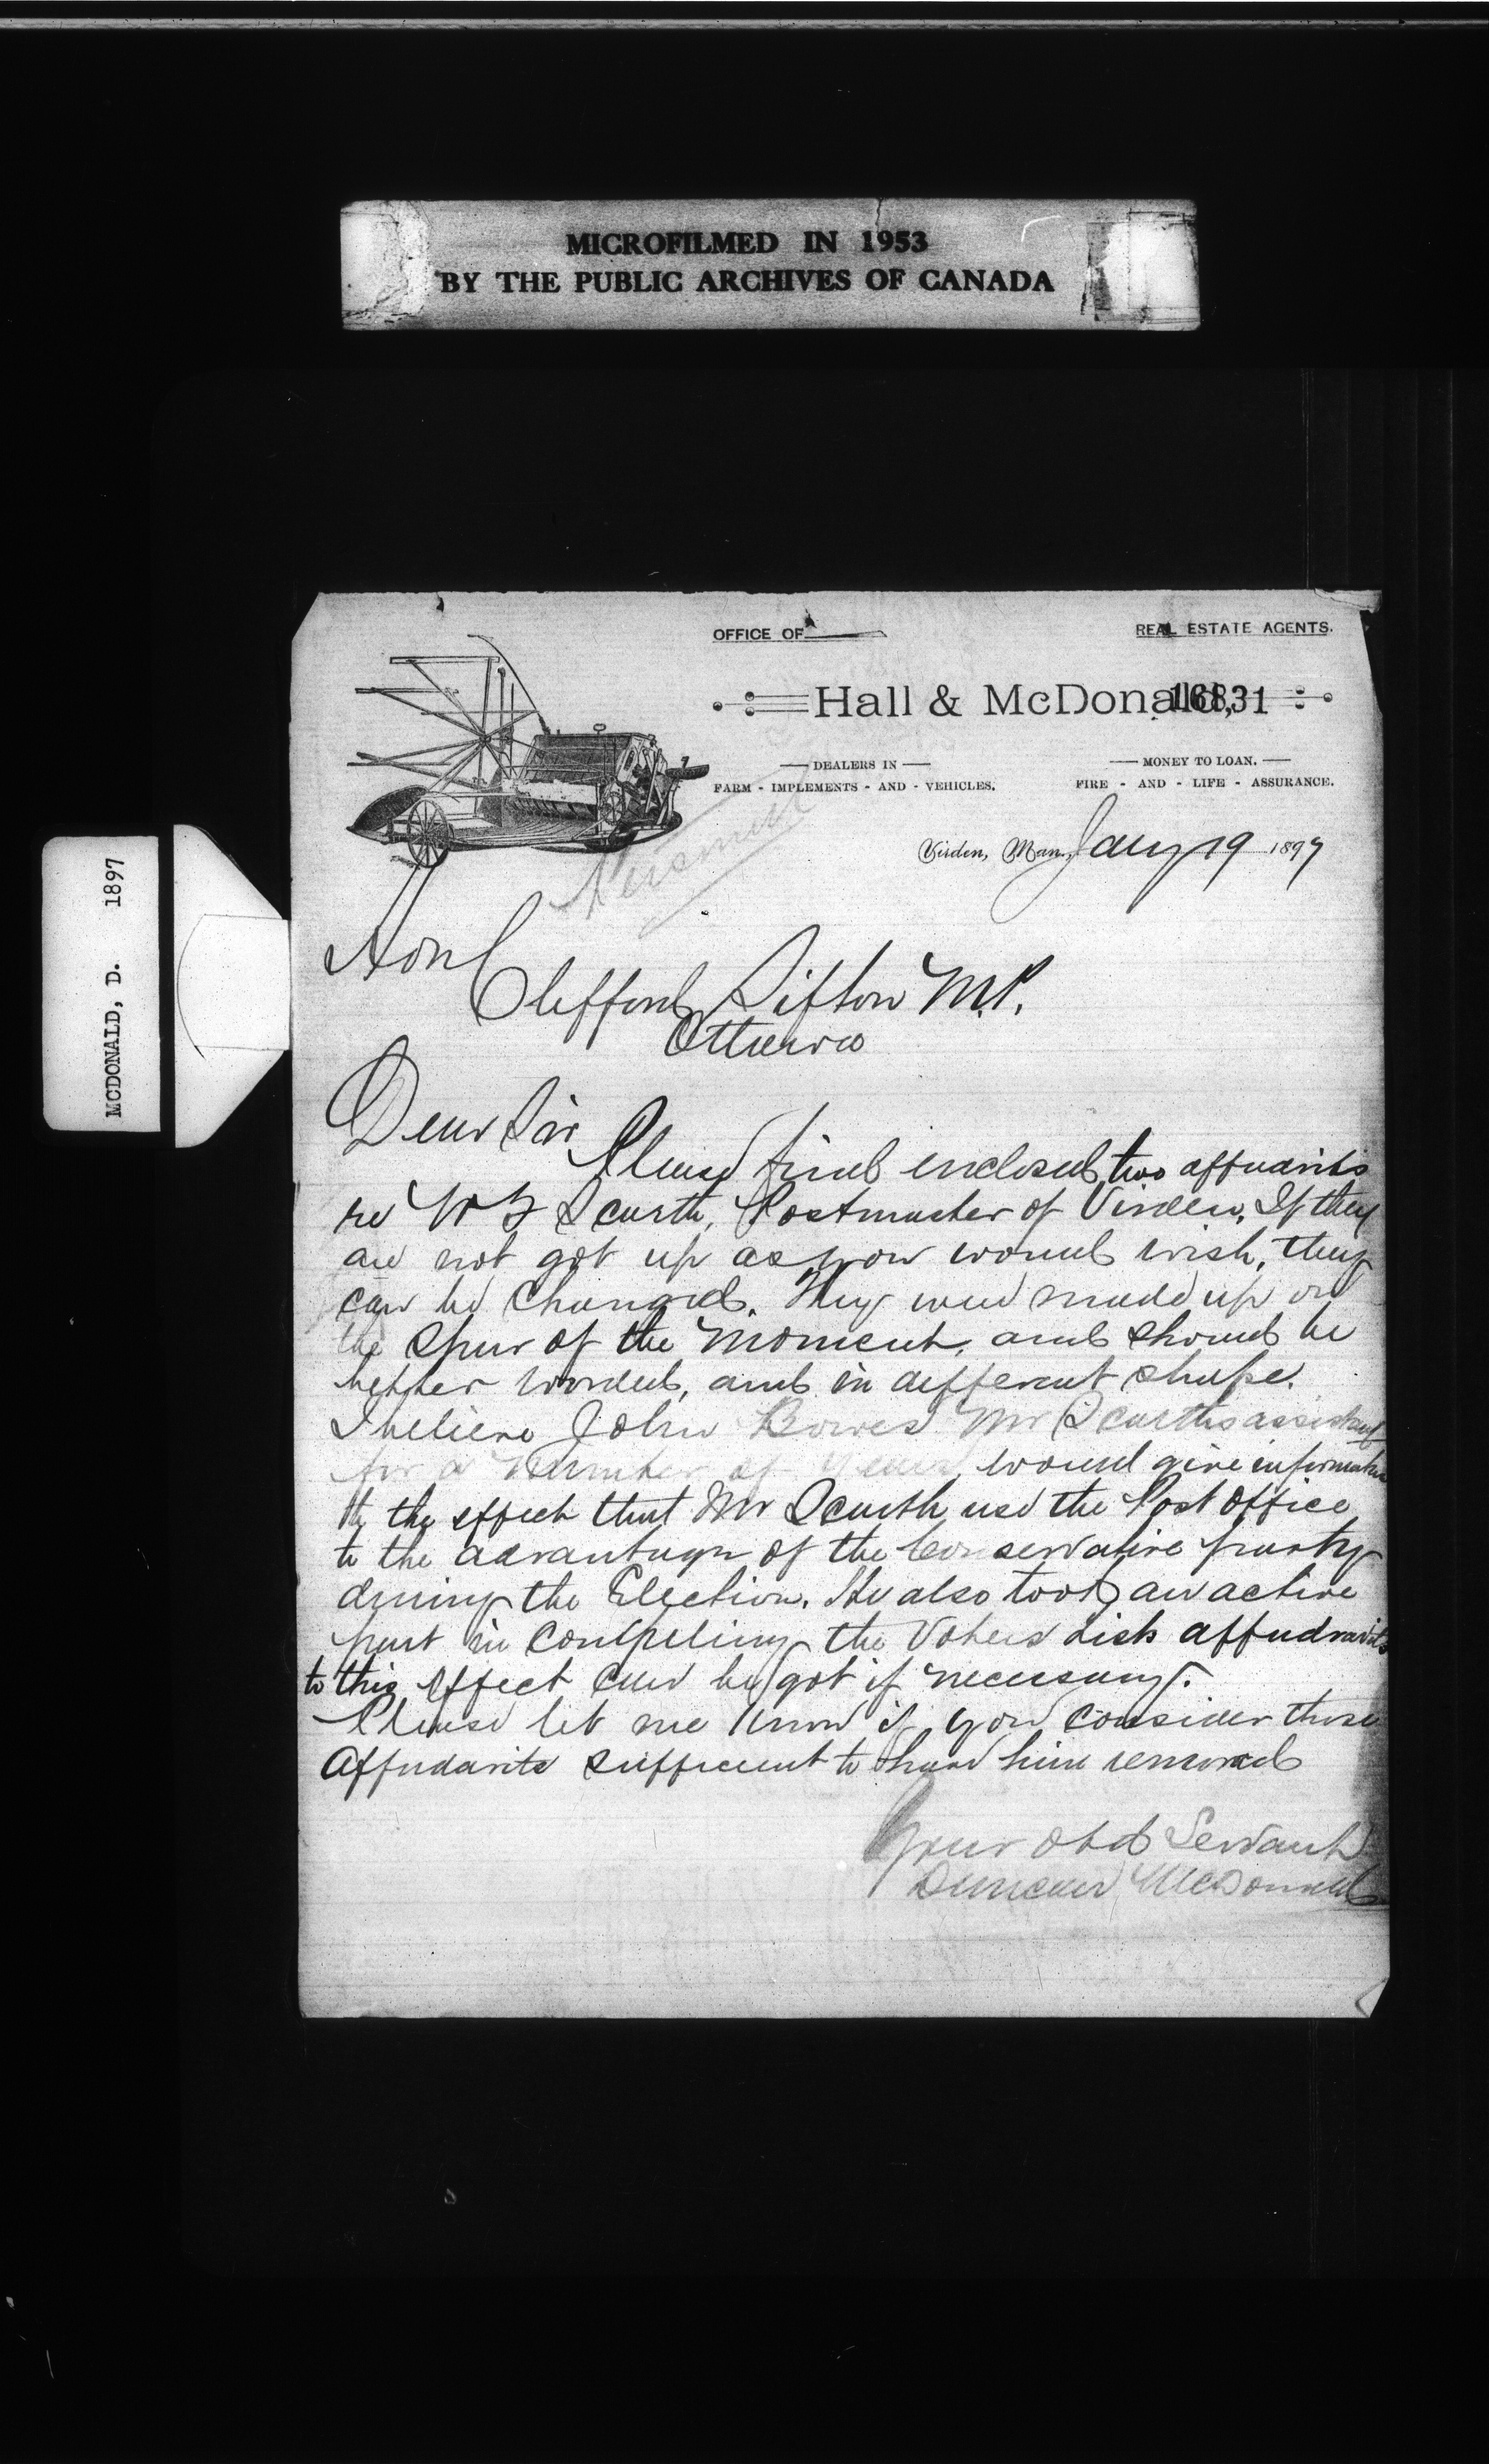 MICROFILMED IN 1953
BY THE PUBLIC ARCHIVES OF CANADA
MCDONALD, D. 1897
OFFICE OF
REAL ESTATE AGENTS.
Hall & McDonald,
16831
DEALERS IN
FARM - IMPLEMENTS - AND - VEHICLES.
MONEY TO LOAN.
FIRE - AND - LIFE - ASSURANCE.
Virden, Man., Jany 19 1897
Personal
Hon
Clifford Sifton M.P.
Ottawa
Dear Sir
Please find enclosed two affudavits
re W F Scarth, Postmaster of Virden, If they
are not got up as you would wish, they
can be changed. They were made up on
the spur of the moment, and should be
better worded, and in different shape.
I believe John Bowes Mr Scarths assistant
for a Number of years, would give information
to the effect that Mr Scarth use the Post Office
to the advantage of the Conservative party
during the Election. He also took an active
part in Compiling the Voters Lists affudavits
to this effect can be got if necessary.
Please let me know if you consider these
Affudavits sufficient to have him removed
Your obd Servant
Duncan McDonald